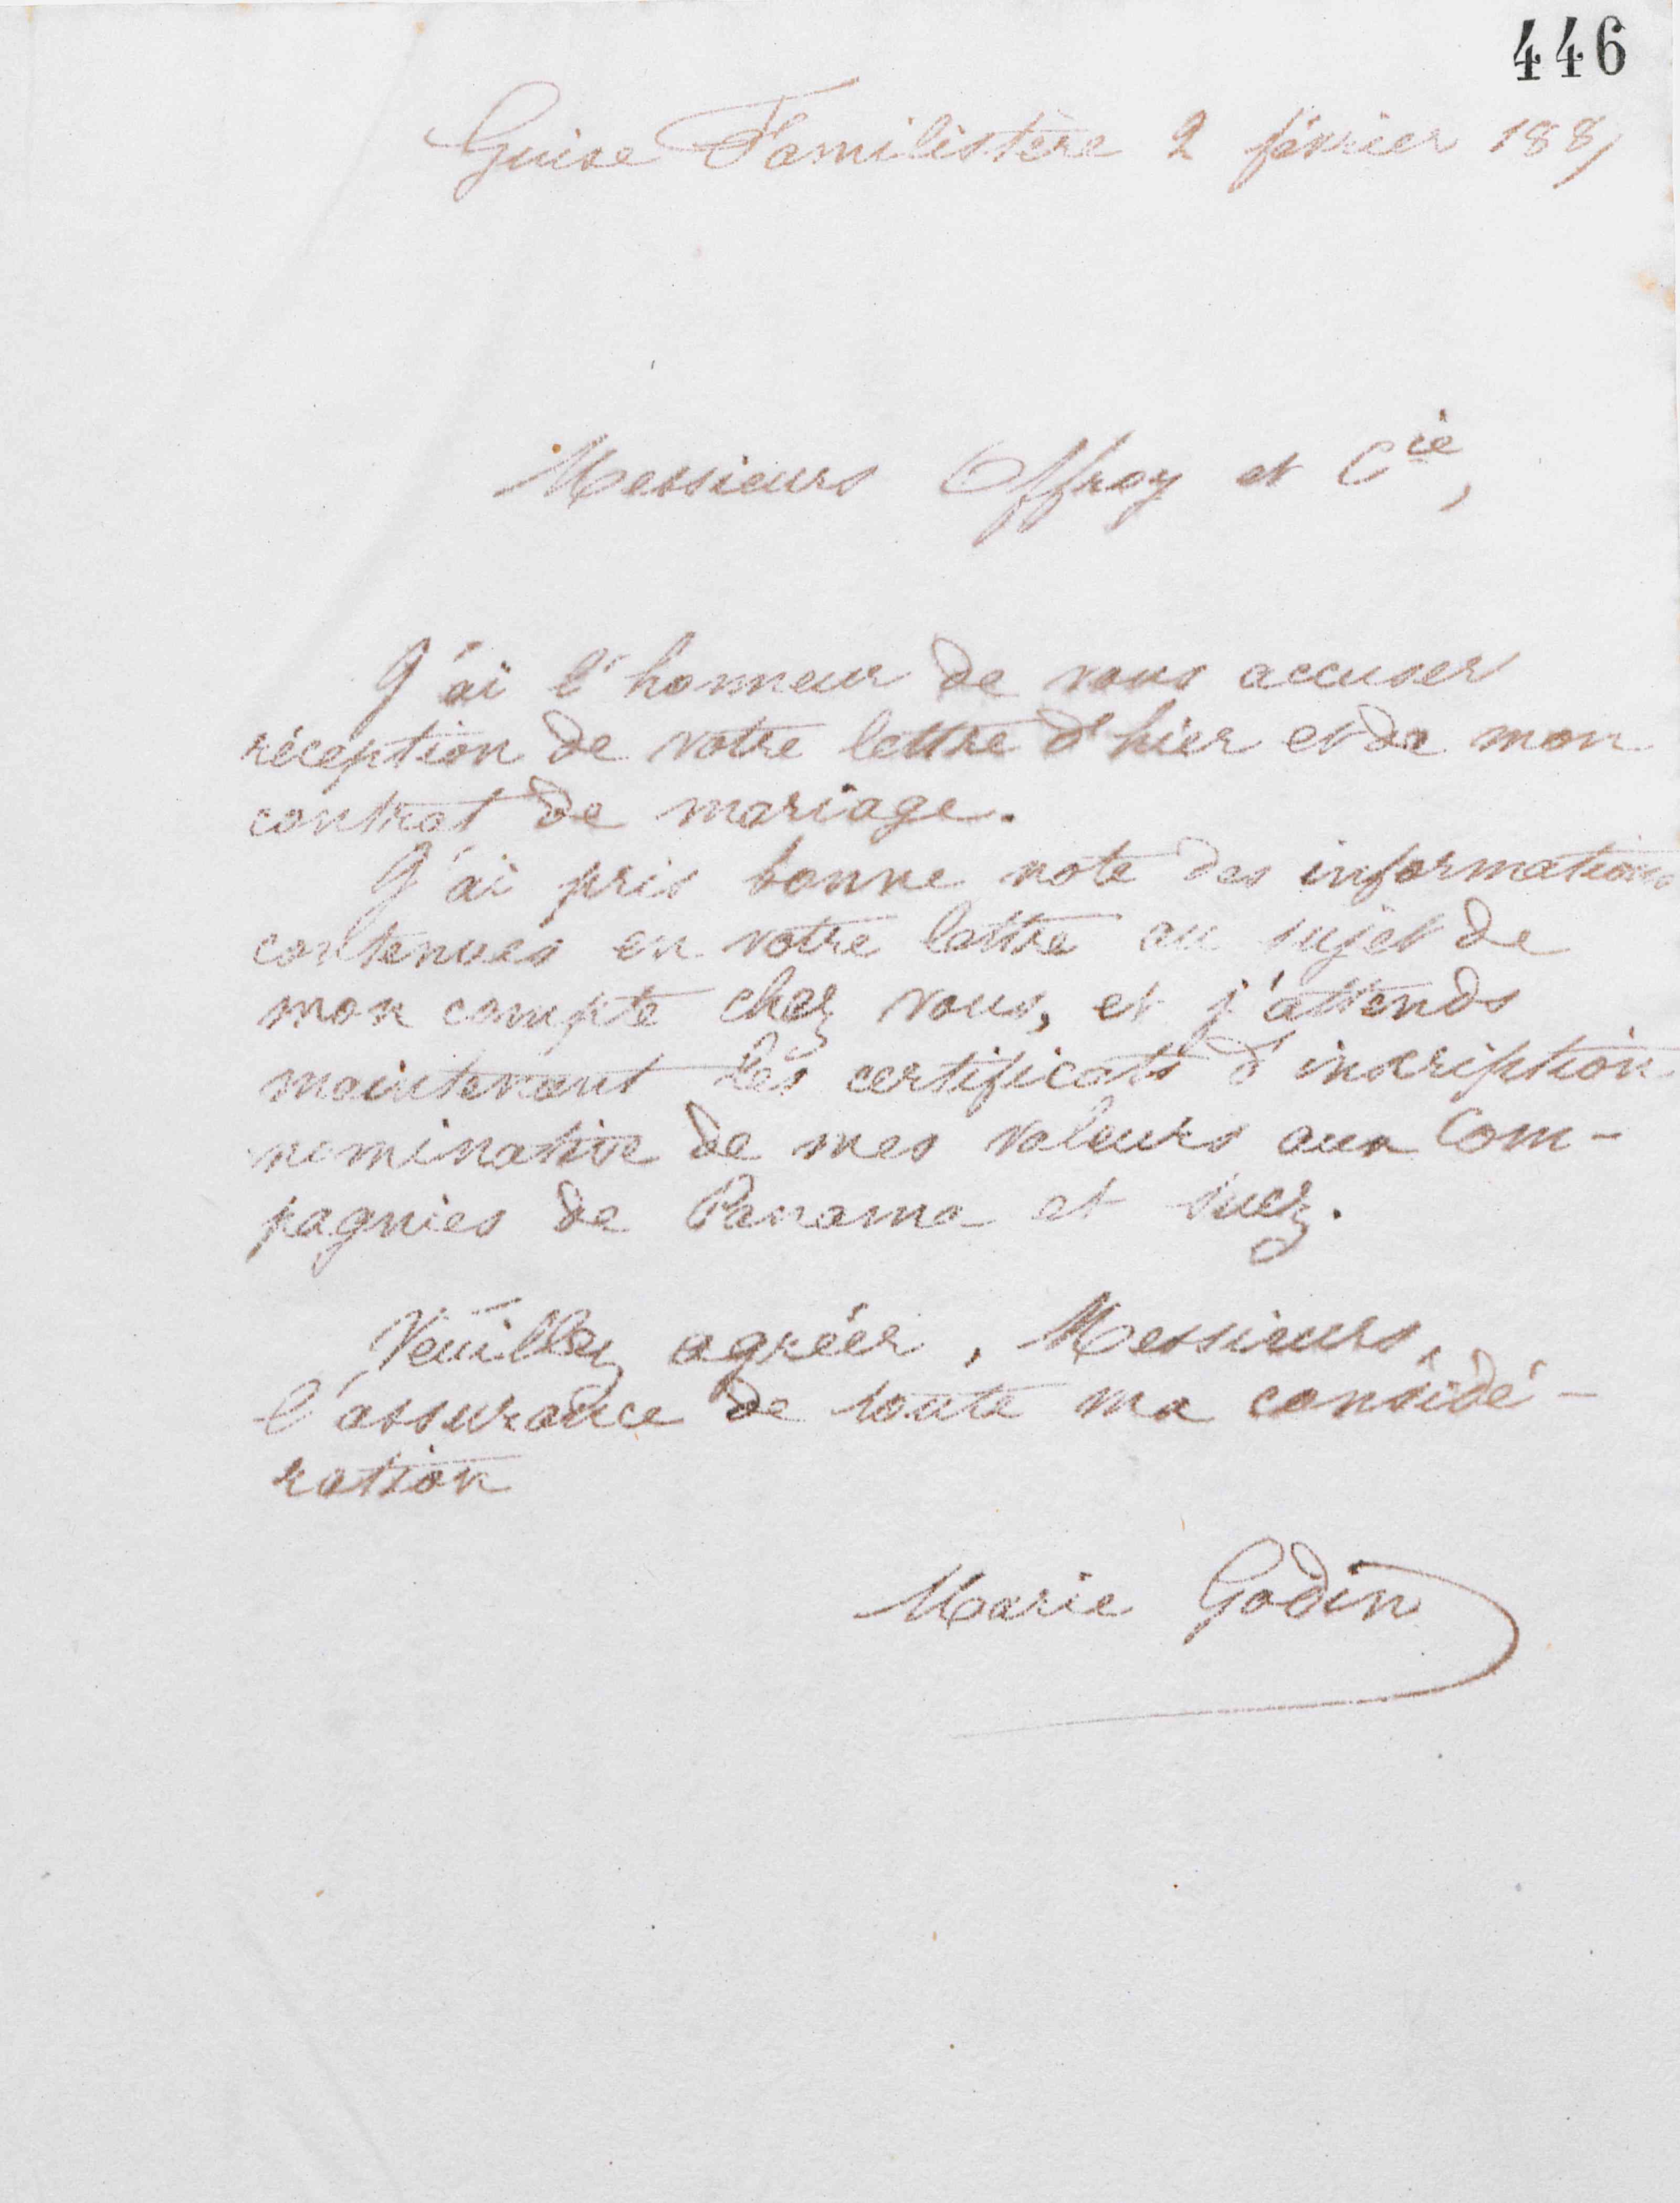 446
Guise Familistère 2 février 188
Messieurs Offroy et Cie,
J'ai l'honneur de vous accuser
réception de votre lettre d'hier et de mon
contrat de mariage.
J'ai pris bonne note des informations
contenues en votre lettre au sujet de
mon compte chez vous, et j'attends
maintenant les certificats d'inscription
nominative de mes valeurs aux Com-
pagnies de Panama et Suez.
Veuillez agréer, Messieurs,
l'assurance de toute ma considé-
ration
Marie Godin